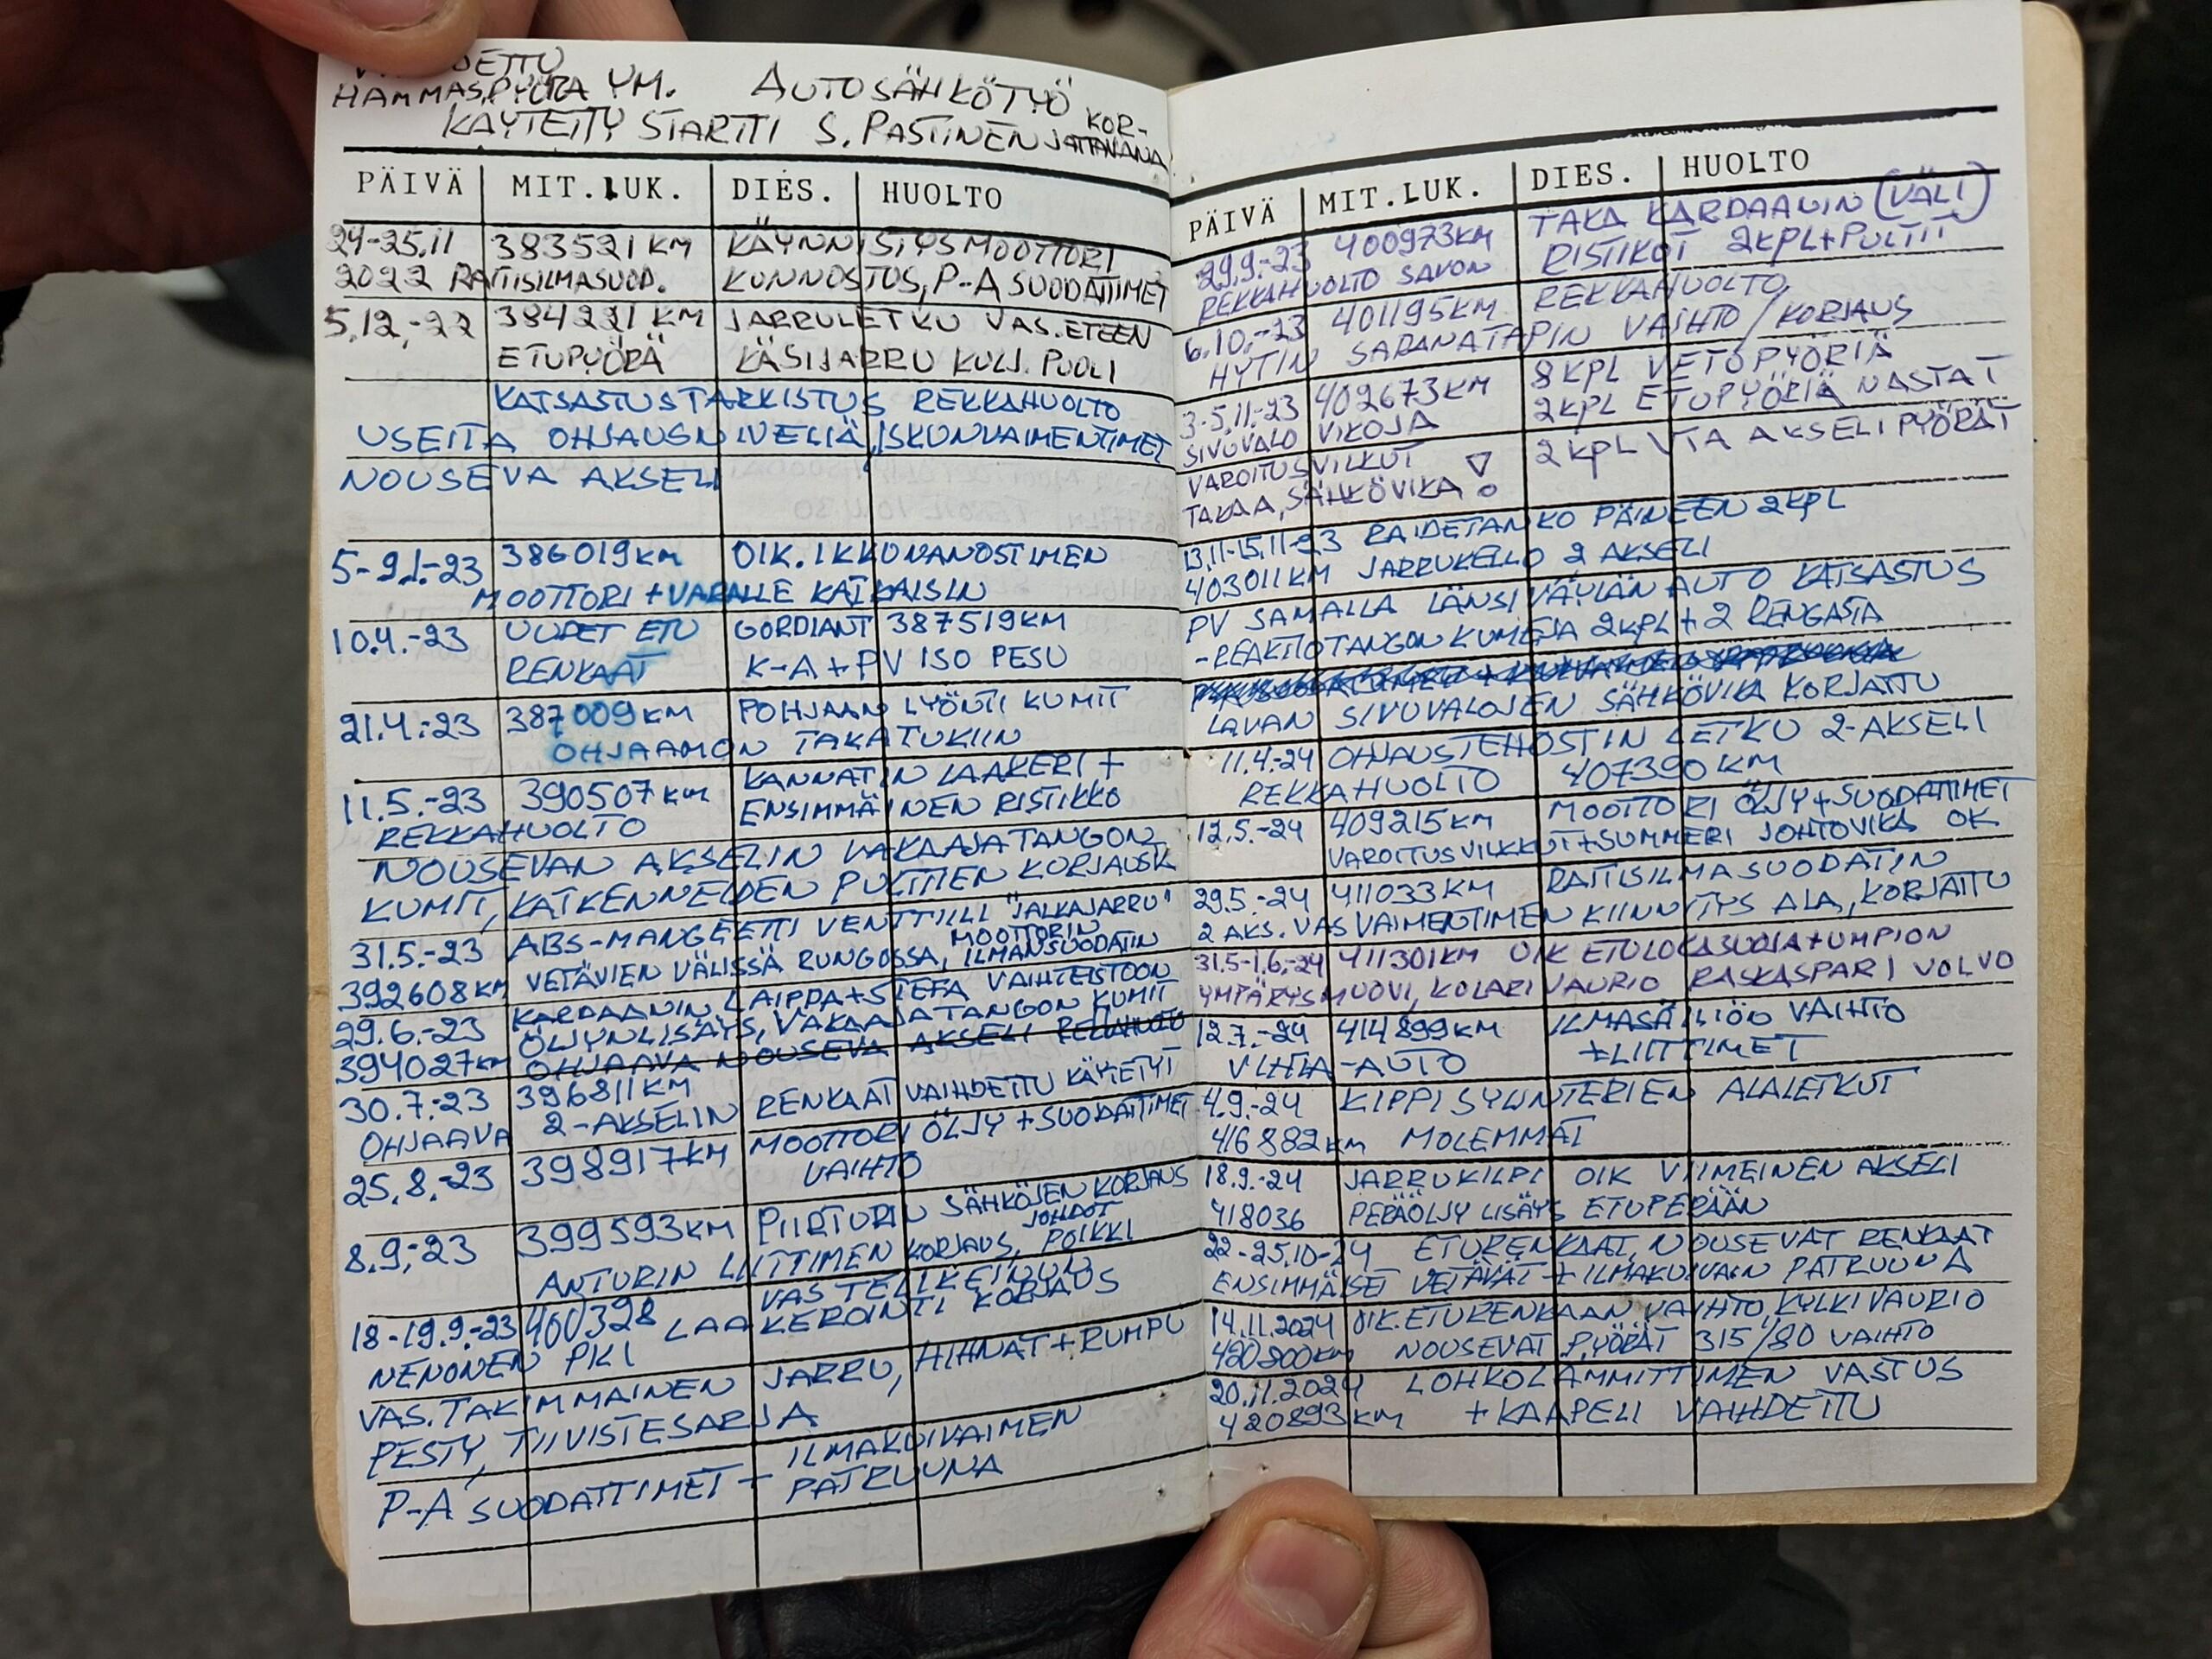 HAMMASPYÖRÄ YM. AUTOSÄHKÖTYÖ
KÄYTETTY STARTTI S. PASTINEN KOR-
JATTAVANA
PÄIVÄ MIT.LUK. DIES. HUOLTO
24-25.11 383521 KM KÄYNNISTYSMOOTTORI
2022 RAITISILMASUOD. KUNNOSTUS, P-A SUODATTIMET
5.12,-22 384221 KM JARRULETKU VAS. ETEEN
ETUPYÖRÄ KÄSIJARRU KULJ. PUOLI
KATSASTUSTARKISTUS REKKAHUOLTO
USEITA OHJAUSNIVELIÄ, ISKUNVAIMENTIMET
NOUSEVA AKSELI
5-9.1.-23 386019KM OIK. IKKUNANOSTIMEN
MOOTTORI + VARALLE KATKAISIN
10.4.-23 UUDET ETU GORDIANT 387519KM
RENKAAT K-A + PV ISO PESU
21.4.-23 387009KM POHJAAN LYÖNTI KUMIT
OHJAAMON TAKATUKIIN
11.5.-23 390507KM KANNATIN LAAKERI +
REKKAHUOLTO ENSIMMÄINEN RISTIKKO
NOUSEVAN AKSELIN VAKAAJATANGON
KUMIT, KATKENNEIDEN PULTTIEN KORJAUS
31.5.-23 ABS-MANGEETTI VENTTIILI "JALKAJARRU"
392608KM VETÄVIEN VÄLISSÄ RUNGOSSA, MOOTTORIN ILMANSUODATIN
29.6.-23 KARDAANIN LAIPPA+STEFA VAIHTEISTOON
ÖLJYNLISÄYS, VAKAAJATANGON KUMIT
394027KM OHJAAVA NOUSEVA AKSELI REKKAHUOLTO
30.7.-23 396811KM
OHJAAVA 2-AKSELIN RENKAAT VAIHDETTU KÄYTETYT
25.8.-23 398917KM MOOTTORI ÖLJY + SUODATTIMET
VAIHTO
8.9,-23 399593KM PIIRTURIN SÄHKÖJEN KORJAUS
ANTURIN LIITTIMEN KORJAUS, JOHDOT POIKKI
18-19.9.-23 400328 VAS TELIKEINUN
NENONEN PKI LAAKEROINTI KORJAUS
VAS. TAKIMMAINEN JARRU, HIHNAT + RUMPU
PESTY, TIIVISTESARJA
P-A SUODATTIMET + ILMAKUIVAIMEN
PATRUUNA
PÄIVÄ MIT.LUK. DIES. HUOLTO
29.9.-23 400973KM TAKA KARDAANIN (VÄLI)
REKKAHUOLTO SAVON RISTIKOT 2KPL+PULTIT
6.10.-23 401195KM REKKAHUOLTO
HYTIN SARANATAPIN VAIHTO/KORJAUS
3-5.11.-23 402673KM 8KPL VETOPYÖRIÄ
SIVUVALO VIKOJA 2KPL ETUPYÖRIÄ NASTAT
VAROITUSVILKUT 2KPL VTA AKSELI PYÖRÄT
TAKAA, SÄHKÖVIKA !
13.11-15.11-23 RAIDETANKO PÄINEEN 2KPL
403011KM JARRUKELLO 2 AKSELI
PV SAMALLA LÄNSIVÄYLÄN AUTO KATSASTUS
- REAKTIOTANGON KUMEJA 2KPL + 2 RENGASTA
LAVAN SIVUVALOJEN SÄHKÖVIKA KORJATTU
11.4.-24 OHJAUSTEHOSTIN LETKU 2-AKSELI
REKKAHUOLTO 407390KM
12.5.-24 409215KM MOOTTORI ÖLJY+SUODATTIMET
VAROITUSVILKKUT+SUMMERI JOHTOVIKA OK
29.5.-24 411033KM RAITISILMASUODATIN
2 AKS. VAS VAIMENTIMEN KIINNITYS ALA, KORJATTU
31.5-1.6.-24 411301KM OIK ETULOKASUOJA+UMPION
YMPÄRYSMUOVI, KOLARIVAURIO RASKASPARI VOLVO
12.7.-24 414899KM ILMASÄILIÖN VAIHTO
VIHTA-AUTO +LIITTIMET
4.9.-24 KIPPISYLINTERIEN ALALETKUT
416882KM MOLEMMAT
18.9.-24 JARRUKILPI OIK VIIMEINEN AKSELI
418036 PERÄÖLJY LISÄYS ETUPERÄÄN
22-25.10-24 ETURENKAAT, NOUSEVAT RENKAAT
ENSIMMÄISET VETÄVÄT + ILMAKUIVAIN PATRUUNA
14.11.2024 OIK. ETURENKAAN VAIHTO, KYLKIVAURIO
420800KM NOUSEVAT PYÖRÄT 315/80 VAIHTO
20.11.2024 LOHKOLÄMMITTIMEN VASTUS
420893KM + KAAPELI VAIHDETTU